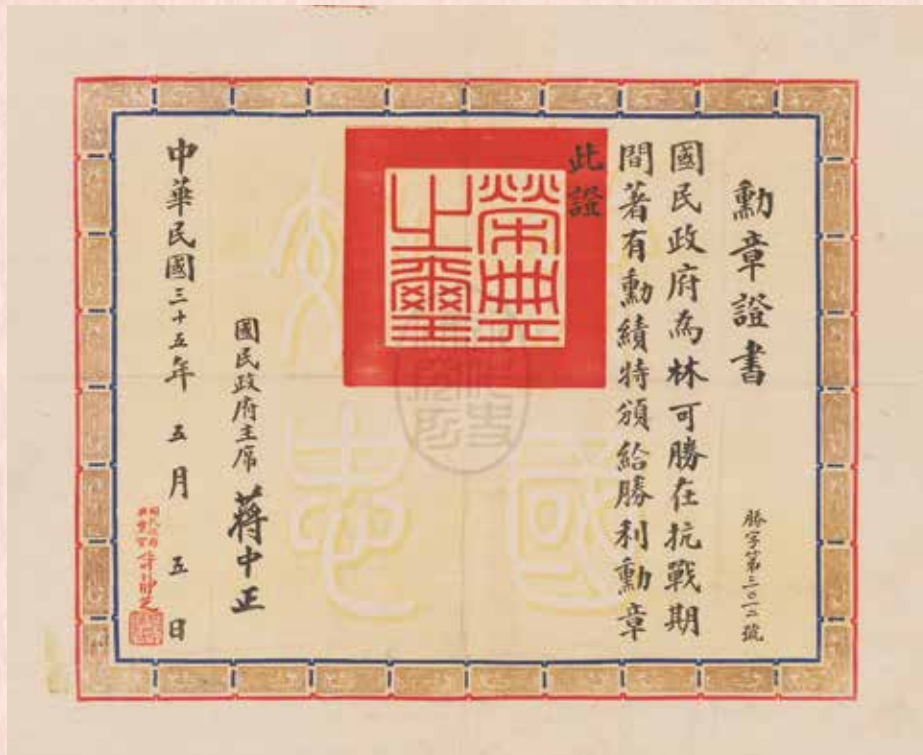 勳章證書
勝字第三〇一二號
國民政府為林可勝在抗戰期
間著有勳績特頒給勝利勳章
此證
榮典之璽
國民政府主席 蔣中正
中華民國三十五年五月五日